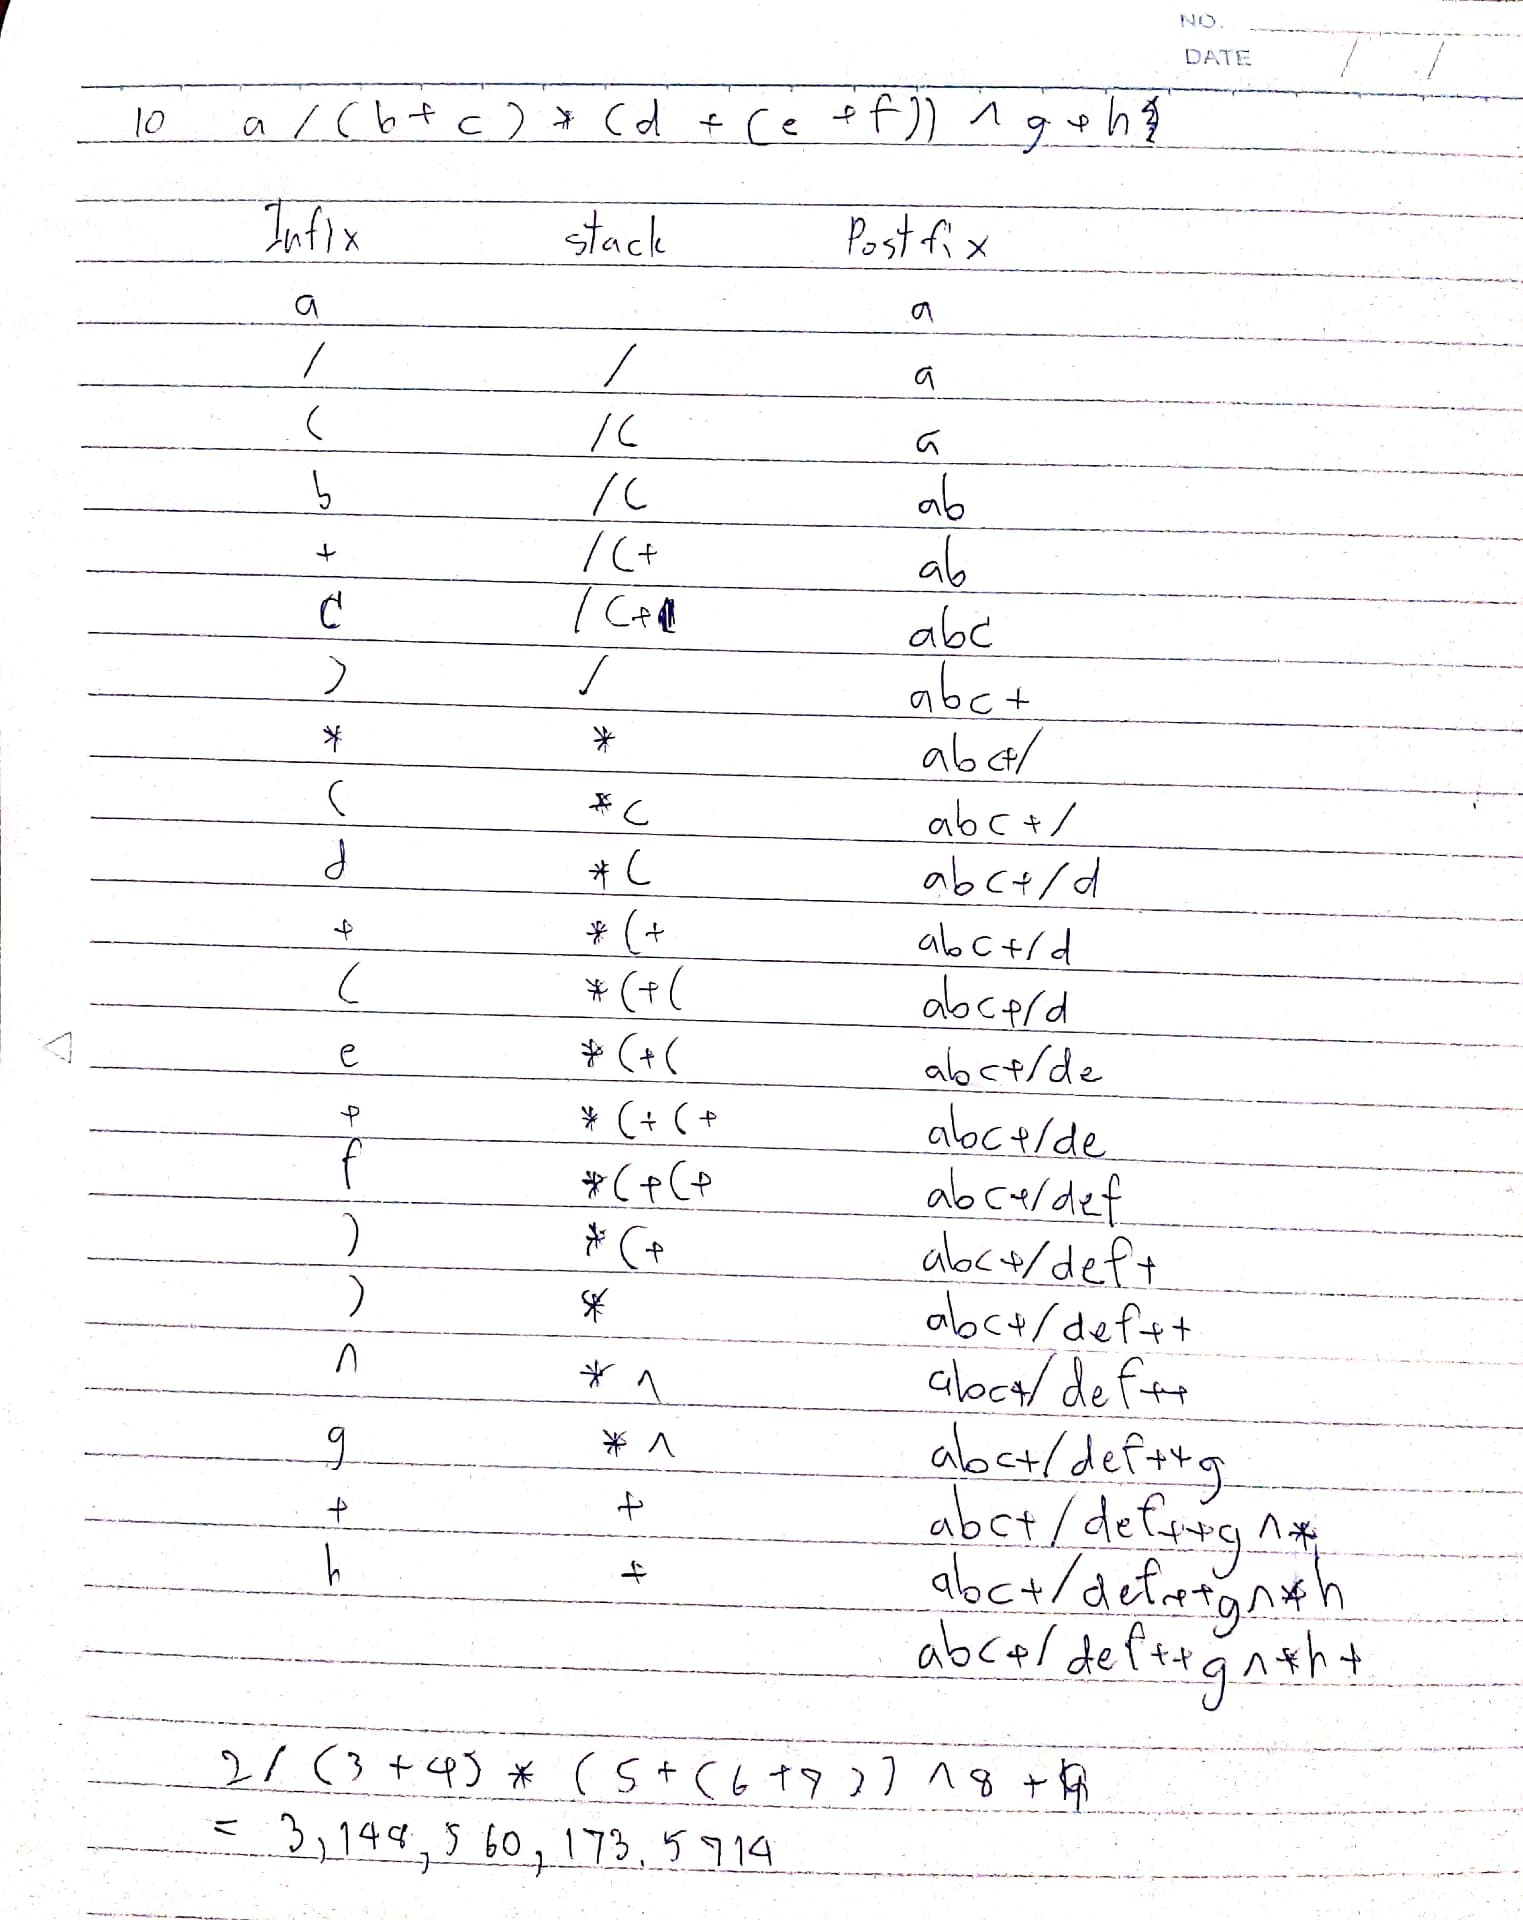 NO.
DATE / /
10 a / (b + c) * (d + (e + f)) ^ g + h
Infix stack Postfix
a a
/ / a
( /( a
b /( ab
+ /(+ ab
c /(+ abc
) / abc+
* * abc+/
( *( abc+/
d *( abc+/d
+ *(+ abc+/d
( *(+( abc+/d
e *(+( abc+/de
+ *(+(+ abc+/de
f *(+(+ abc+/def
) *(+ abc+/def+
) * abc+/def++
^ *^ abc+/def++
g *^ abc+/def++g
+ + abc+/def++g^*
h + abc+/def++g^*h
abc+/def++g^*h+
2 / (3 + 4) * (5 + (6 + 7)) ^ 8 + 9
= 3,148,560,173.5714